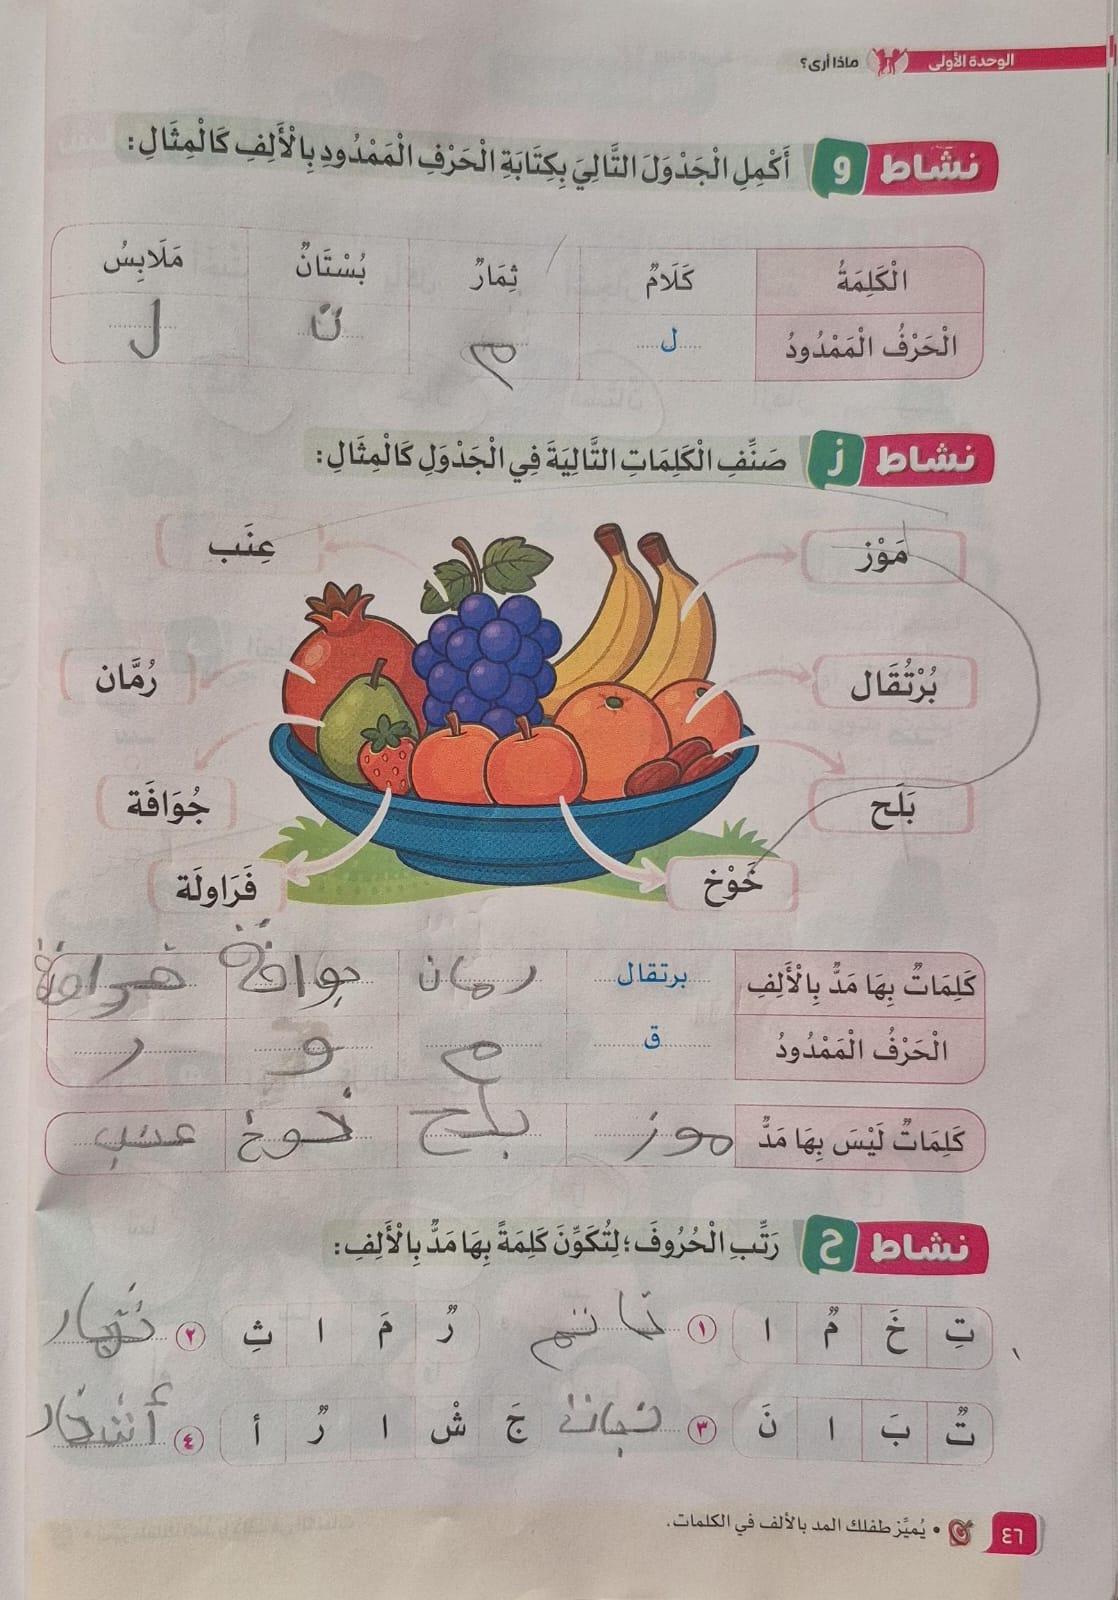 الوحدة الأولى ماذا أرى؟
نشاط و أَكْمِلِ الْجَدْوَلَ التَّالِيَ بِكِتَابَةِ الْحَرْفِ الْمَمْدُودِ بِالْأَلِفِ كَالْمِثَالِ:
الْكَلِمَةُ كَلَامٌ ثِمَارٌ بُسْتَانٌ مَلَابِسُ
الْحَرْفُ الْمَمْدُودُ ل م ت ل
نشاط ز صَنِّفِ الْكَلِمَاتِ التَّالِيَةَ فِي الْجَدْوَلِ كَالْمِثَالِ:
مَوْز عِنَب
بُرْتُقَال رُمَّان
بَلَح جُوَافَة
خَوْخ فَرَاولَة
كَلِمَاتٌ بِهَا مَدٌّ بِالْأَلِفِ برتقال رمان جوافة
الْحَرْفُ الْمَمْدُودُ ق م و ر
كَلِمَاتٌ لَيْسَ بِهَا مَدٌّ موز بلح خوخ عنب
نشاط ح رَتِّبِ الْحُرُوفَ؛ لِتُكَوِّنَ كَلِمَةً بِهَا مَدٌّ بِالْأَلِفِ:
تِ خَ مٌ ا ١ رٌ مَ ا ثِ ٢
تٌ بَ ا نَ ٣ جَ شْ ا رٌ أ ٤ أشجار
٤٦ • يُميِّز طفلك المد بالألف في الكلمات.